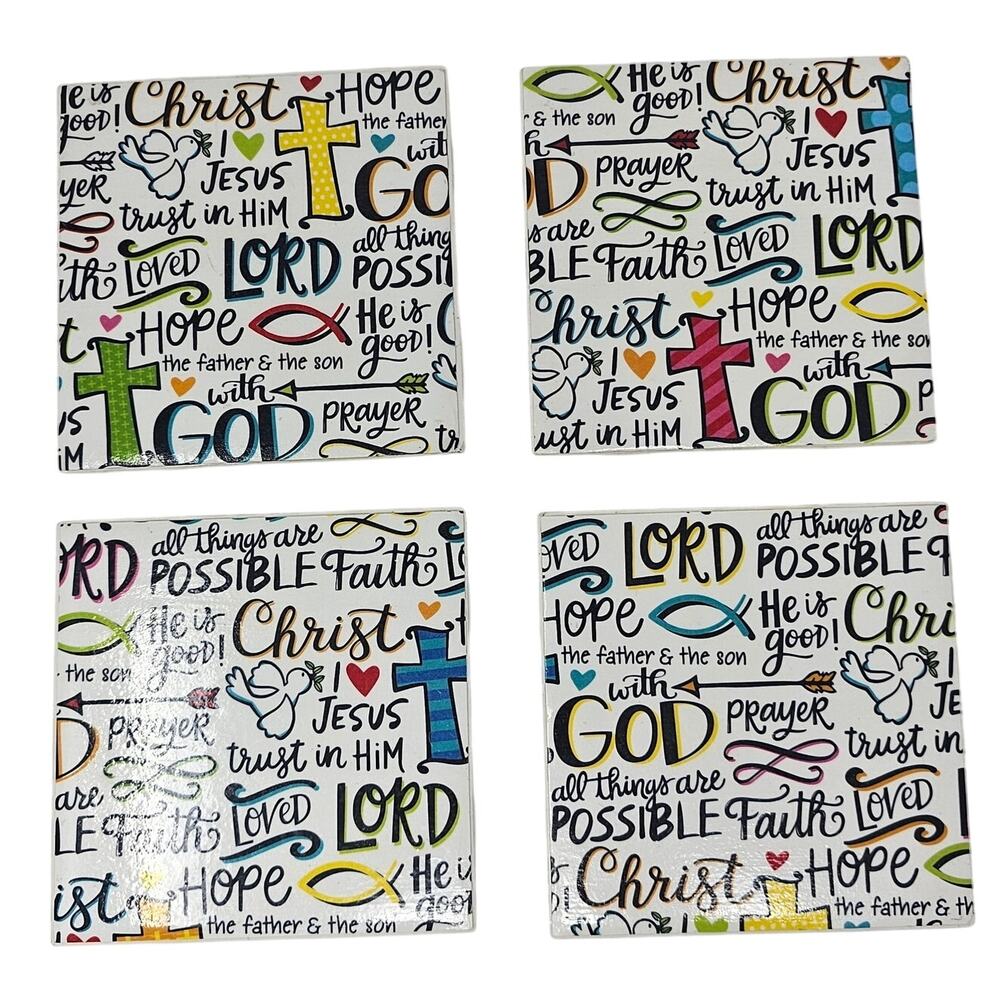 He is Christ HOPE
good! the father
I with
JESUS GO
YER trust in HiM
ith LOVED LORD all thing
POSSI
t HOPE He is
good!
the father & the son
with
US GOD PRAYER
iM tr
He is Christ
good!
& the son I
h JESUS
OD PRAYER trust in HiM
s are
BLE Faith LOVED LORD
Christ HOPE
the father & the son
I with
JESUS GOD P
ust in HiM
ORD all things are
POSSIBLE Faith LO
He is Christ
good!
the son I
PRAYER JESUS
D trust in HiM
are
LE Faith LOVED LORD
ist HOPE He is
good
the father & the son
OVED LORD all things are
POSSIBLE F
HOPE He is Chri
good!
the father & the son
with I
GOD PRAYER JE
trust in
all things are
POSSIBLE Faith LOVED L
Christ HOPE
the father & th